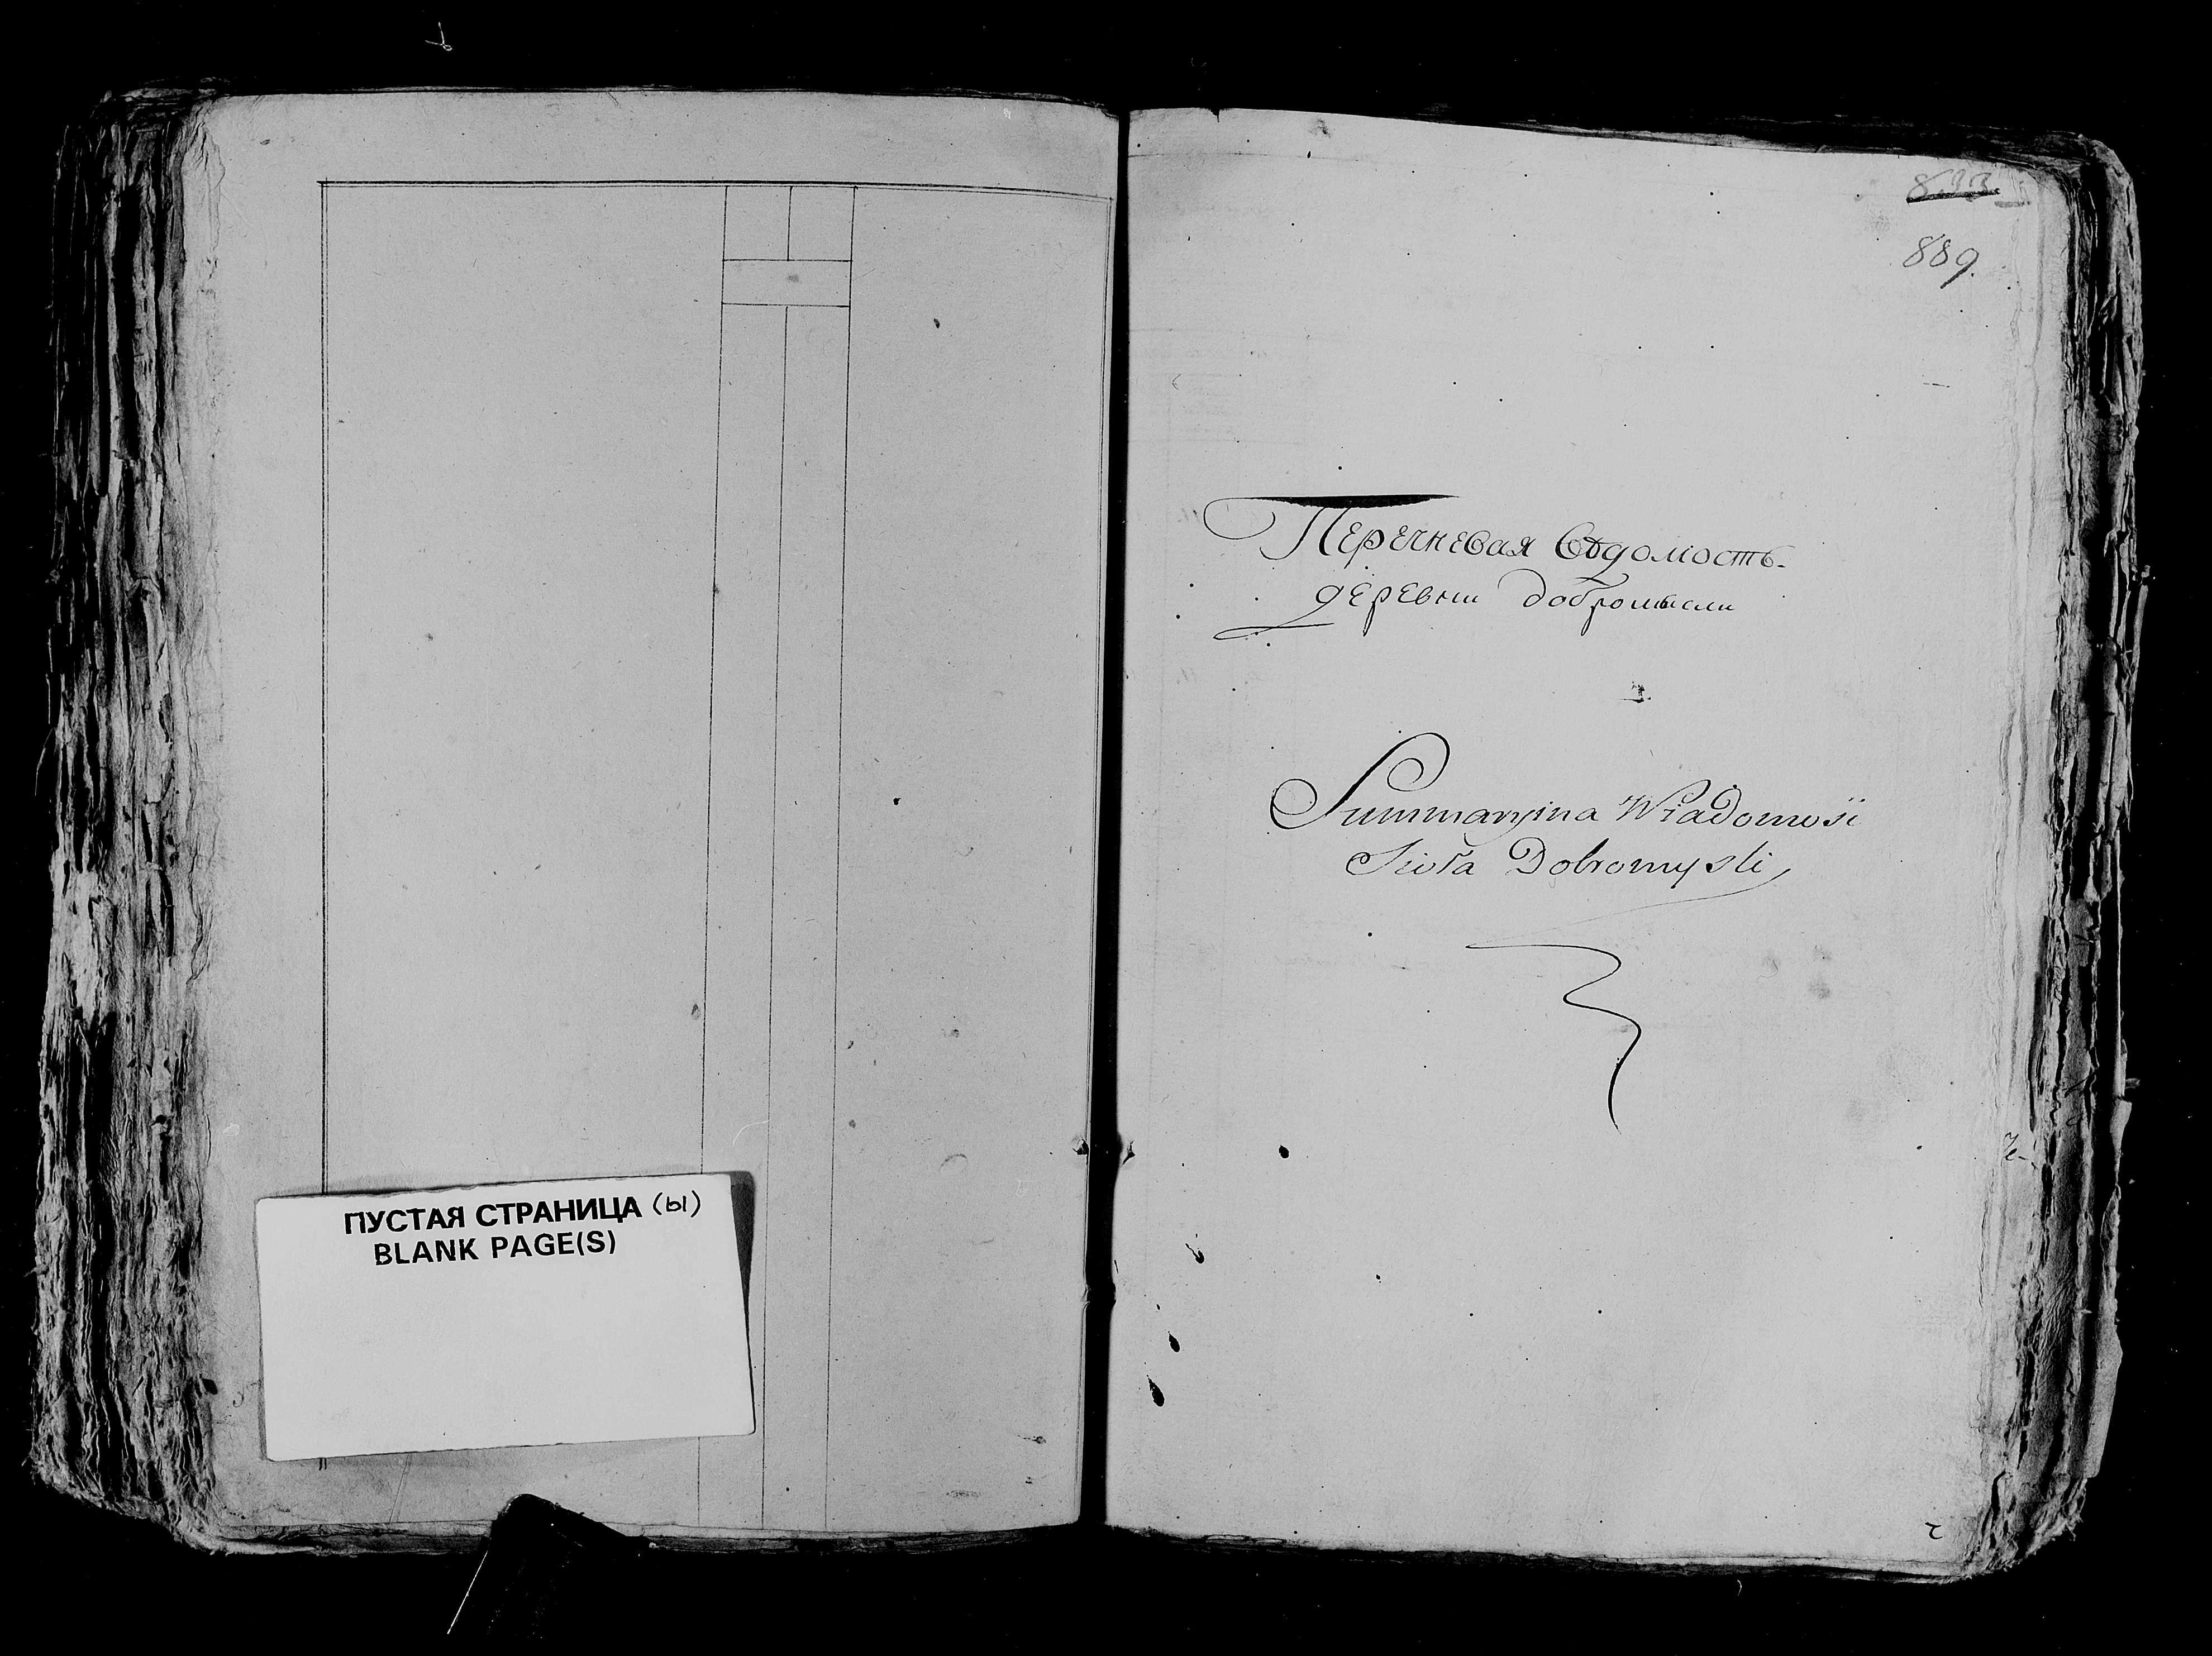 ПУСТАЯ СТРАНИЦА (ы)
BLANK PAGE(S)
889.
Перечневая Вѣдомость
деревни добромысли
Summaryina Wiadomość
Sioła Dobromysli